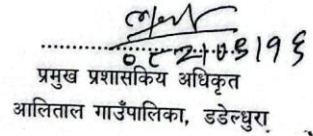 प्रमुख प्रशासकिय अधिकृत
आलिताल गाउँपालिका, डडेल्धुरा